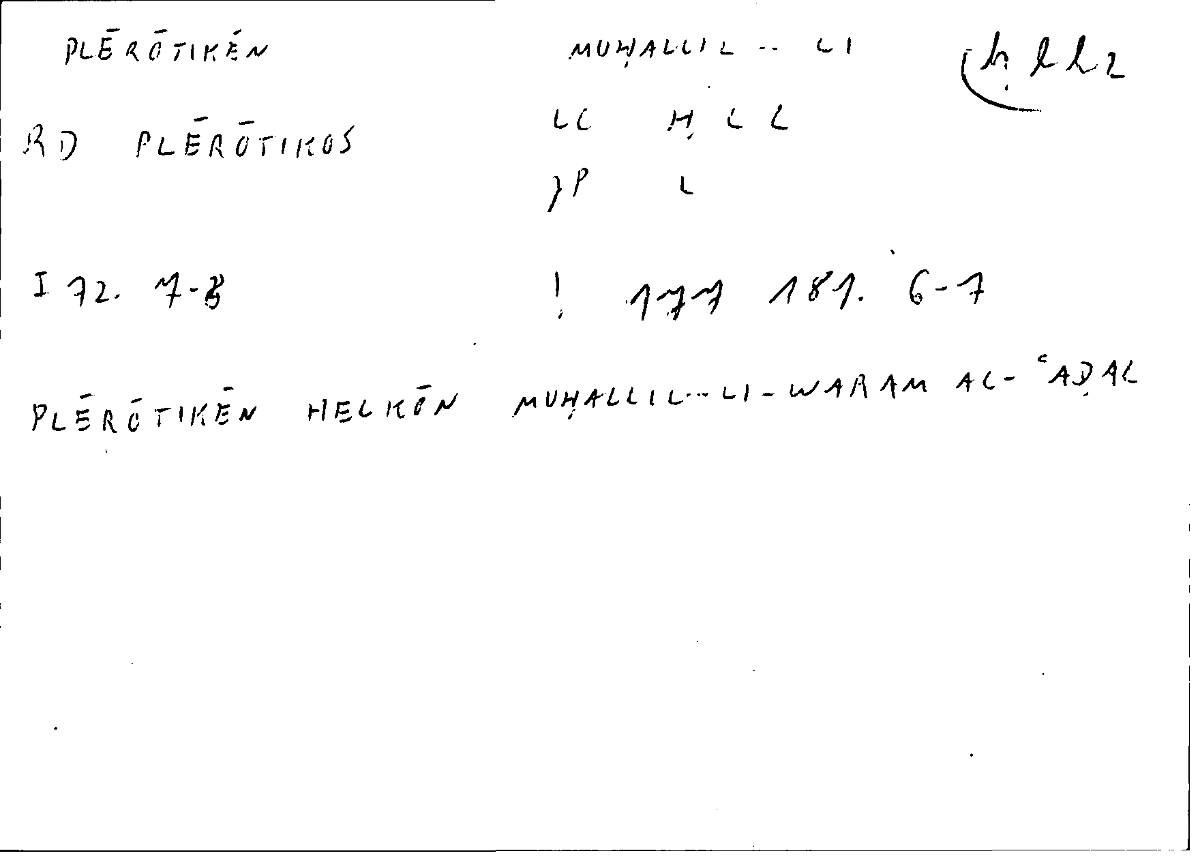 PLĒRŌTIKĒN MUḤALLIL .. LI ḥ l l 2
RD PLĒRŌTIKOS LL Ḥ L L
JP L
I 72. 7-8 ! 177 181. 6-7
PLĒRŌTIKĒN HELKŌN MUḤALLIL...LI-WARAM AL-ʿAḌAL